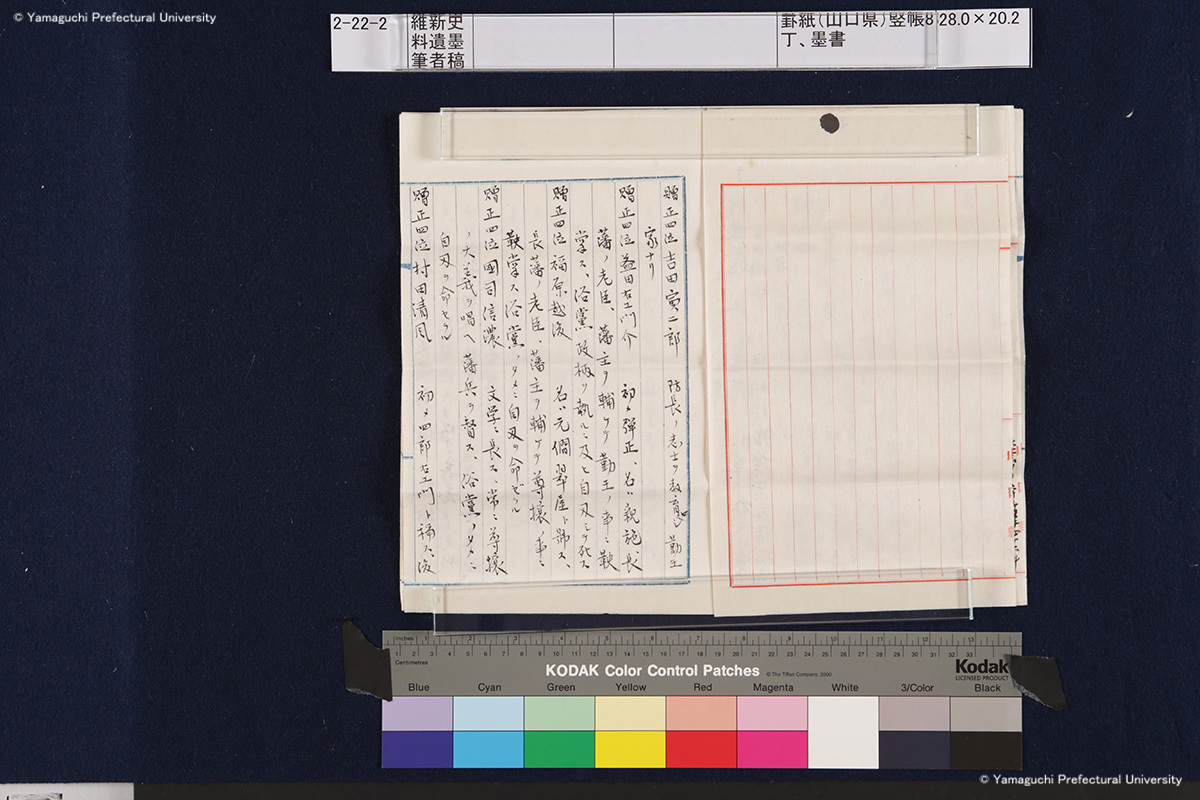 © Yamaguchi Prefectural University
2-22-2
維新史
料遺墨
筆者稿
罫紙(山口県)竪帳8
丁、墨書
28.0×20.2
贈正四位吉田寅二郎 防長ノ志士ヲ教育シ勤王
家ナリ
贈正四位益田右衛門介 初メ弾正、名ハ親施、長
藩ノ老臣、藩主ヲ輔ケテ勤王ノ事ニ鞅
掌ス、俗党政柄ヲ執ルニ及ヒ自刃シテ死ス
贈正四位福原越後 名ハ元僴翠崖ト号ス、
長藩ノ老臣、藩主ヲ輔ケテ尊攘ノ事ニ
鞅掌ス俗党ノタメニ自刃ヲ命ゼラル
贈正四位國司信濃 文学ニ長ス、常ニ尊攘
ノ大義ヲ唱ヘ藩兵ヲ督ス、俗党ノタメニ
自刃ヲ命セラル
贈正四位村田清風 初メ四郎右衛門ト称ス、後
Inches 1 2 3 4 5 6 7 8 9 10 11 12 13
Centimetres
KODAK Color Control Patches
© The Tiffen Company, 2000
Kodak
LICENSED PRODUCT
Blue Cyan Green Yellow Red Magenta White 3/Color Black
© Yamaguchi Prefectural University